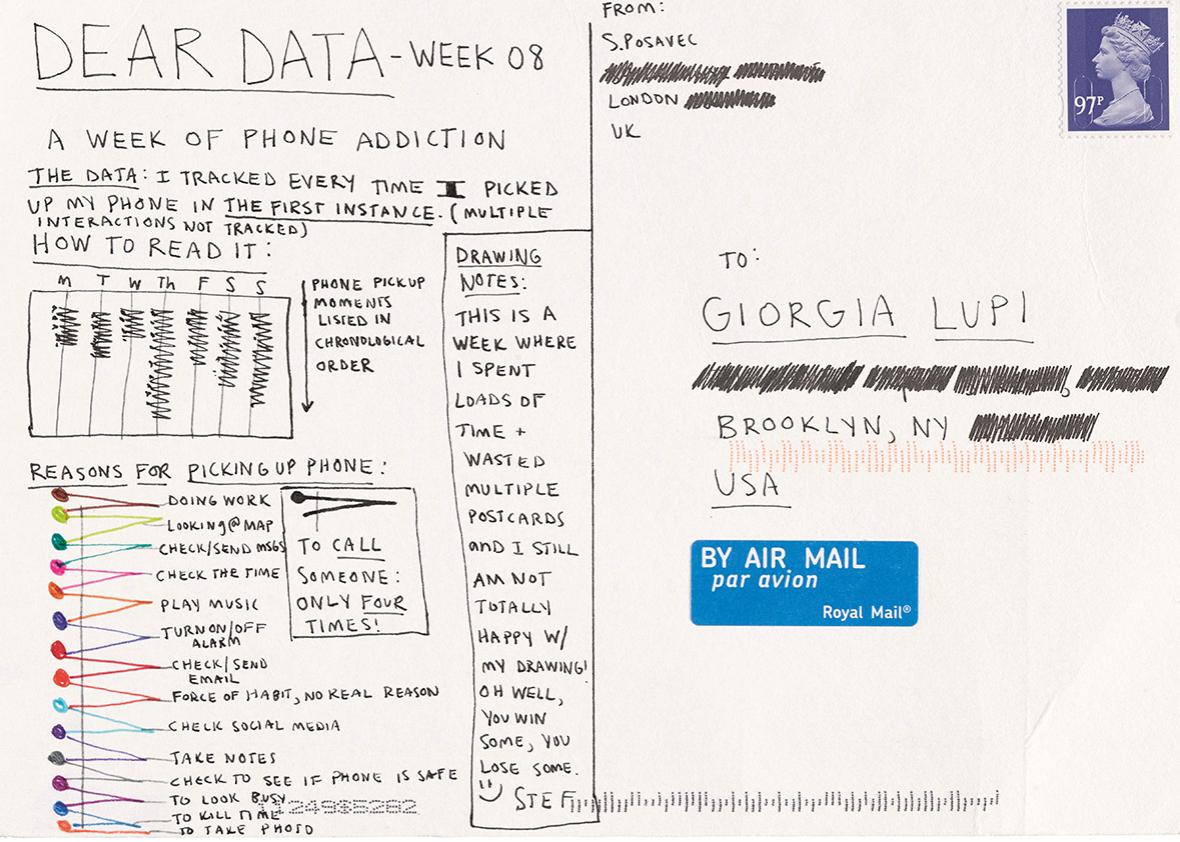 DEAR DATA - WEEK 08
A WEEK OF PHONE ADDICTION
THE DATA: I TRACKED EVERY TIME I PICKED
UP MY PHONE IN THE FIRST INSTANCE. (MULTIPLE
INTERACTIONS NOT TRACKED)
HOW TO READ IT:
M T W Th F S S
PHONE PICKUP
MOMENTS
LISTED IN
CHRONOLOGICAL
ORDER
REASONS FOR PICKING UP PHONE:
DOING WORK
LOOKING@MAP
CHECK/SEND MSGS
CHECK THE TIME
PLAY MUSIC
TURN ON/OFF
ALARM
CHECK/SEND
EMAIL
FORCE OF HABIT, NO REAL REASON
CHECK SOCIAL MEDIA
TAKE NOTES
CHECK TO SEE IF PHONE IS SAFE
TO LOOK BUSY
TO KILL TIME
TO TAKE PHOTO
TO CALL
SOMEONE:
ONLY FOUR
TIMES!
DRAWING
NOTES:
THIS IS A
WEEK WHERE
I SPENT
LOADS OF
TIME +
WASTED
MULTIPLE
POSTCARDS
and I STILL
AM NOT
TOTALLY
HAPPY W/
MY DRAWING!
OH WELL,
YOU WIN
SOME, YOU
LOSE SOME.
STEF
FROM:
S.POSAVEC
LONDON
UK
97P
TO:
GIORGIA LUPI
BROOKLYN, NY
USA
BY AIR MAIL
par avion
Royal Mail®